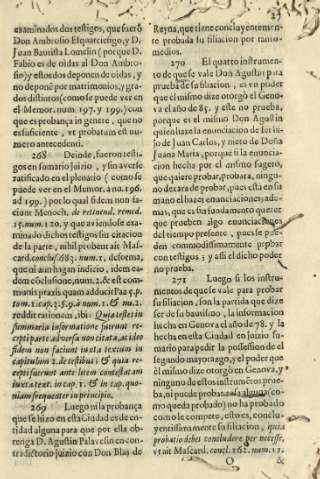 examinados dos testigos, que fuerõ
Don Ambrosio Esquarciafigo, y D.
Juan Bautista Lomelin (porque D.
Fabio es de oidas al Don Ambro-
sio) y estos dos deponen de oidas, y
no deponẽ por matrimonios, y gra-
dos distintos (como se puede ver en
el Memor. num. 197. y 199.) con
que es probança in genere, que no
es suficiente, vt probatum est nu-
mero antecedenti.
268 Deinde, fueron testi-
gos en sumario juizio, y sin averse
ratificado en el plenario (como se
puede ver en el Memor. à nu. 196.
ad 199.) por lo qual fidem non fa-
ciunt Menoch. de retinend. remed.
15. num. 120. y que aviendose exa-
minado dichos testigos sin citacion
de la parte, nihil probent ait Mas-
card. conclus. 683. num. 1. de forma,
que ni aun hagan indicio, idem ea-
dem cõclusione, num. 2. & est com-
munis praxis quam adducit Paz 5. p.
tom. 1. cap. 3. §. 9. à num. 1. & nu. 2.
reddit rationem, ibi: Quia testes in
summaria informatione fuerunt re-
cepti parte adversa non citata, ac ideo
fidem non faciunt iuxta textum in
capitulum 2. de testibus: & quia re-
cepti fuerunt ante litem contestatam
iuxta text. in cap. 1. & in cap. quo-
niam frequenter in principio.
269 Luego ni la probança
que se hizo en esta Ciudad es de en-
tidad alguna para que por ella ob-
tenga D. Agustin Palavesin en con-
tradictorio juizio con Don Blas de
Reyna, que tiene concluyentemen-
te probada su filiacion por tanto
medios.
270 El quarto instrumen-
to de que se vale Don Agustin para
prueba de su filiacion, es vn poder
que el mismo dize otorgò el Geno-
va el año de 85. y este no prueba,
porque es el mismo Don Agustin
quien haze la enunciacion de ser hi-
jo de Juan Carlos, y nieto de Doña
Juana Maria, porque si la enuncia-
cion hecha por el mismo sugeto,
que quiere probar, probara, ningu-
no dexara de probar, pues està en su
mano el hazer enunciaciones; ade-
mas, que es sin fundamento querer
que prueben algo enunciaciones
del tiempo presente, pues se pue-
den commodissimamente probar
con testigos; y assi el dicho poder
no prueba.
271 Luego si los instru-
mentos de que se vale para probar
su filiacion, son la partida que dize
ser de su bautismo, la informacion
hecha en Genova el año de 78. y la
hecha en esta Ciudad en juizio su-
mario para pedir la possession de el
segundo mayorazgo, y el poder que
èl mismo dize otorgò en Genova, y
ninguno de estos instrumẽtos prue-
ba, ni puede probar cosa alguna (co-
mo queda probado) no ha probado
como le compete, esto es, concluy-
entissimamente su filiacion, quia
probatio debet concludere per necesse,
vt ait Mascard. concl. 162. num. 11.
O
&